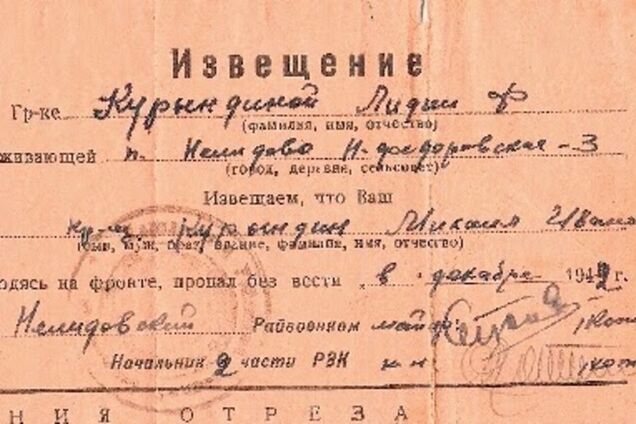 Извещение
Гр-ке Курындиной Лидии Ф
(фамилия, имя, отчество)
живающей п. Нелидово Н-федоровская-3
(город, деревня, сельсовет)
Извещаем, что Ваш
муж Курындин Михаил Ивано
(сын, муж, брат, звание, фамилия, имя, отчество)
одясь на фронте, пропал без вести в декабре 194 г.
Нелидовский Райвоенком майор
Начальник 2 части РВК к-н
НИЯ ОТРЕЗА